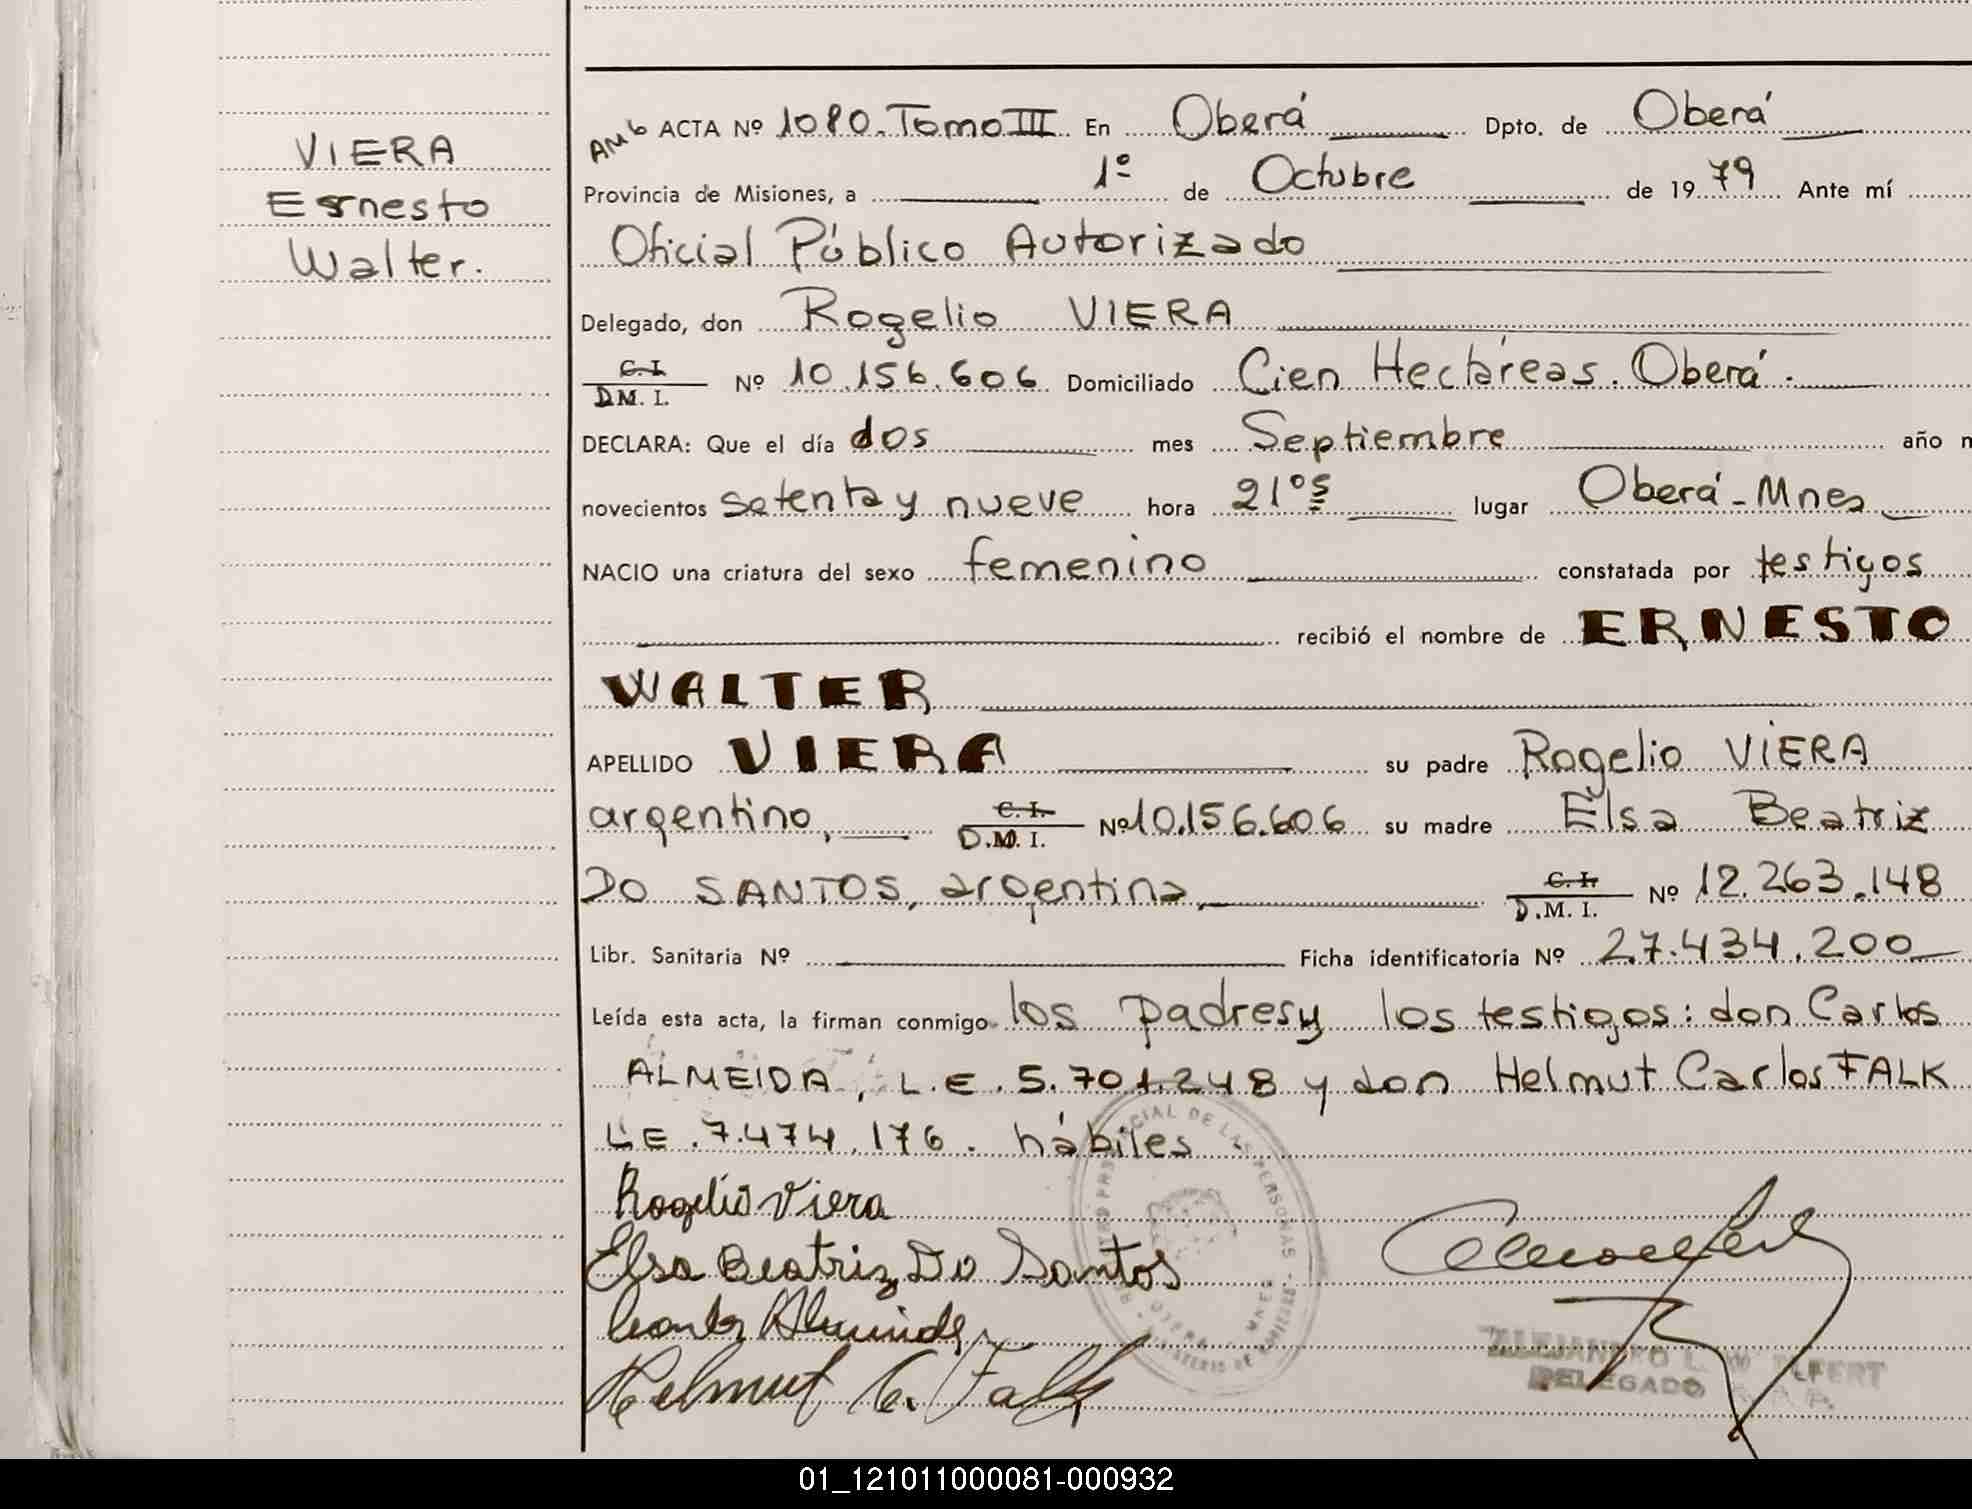 VIERA
Ernesto
Walter.
ACTA Nº 1080. Tomo III En Oberá Dpto. de Oberá
Provincia de Misiones, a 1º de Octubre de 1979 Ante mí
Oficial Público Autorizado
Delegado, don Rogelio VIERA
C. I. D.M. I. Nº 10.156.606 Domiciliado Cien Hectáreas. Oberá.
DECLARA: Que el día dos mes Septiembre año m
novecientos setenta y nueve hora 21ºs lugar Oberá - Mnes
NACIO una criatura del sexo femenino constatada por testigos
recibió el nombre de ERNESTO
WALTER
APELLIDO VIERA su padre Rogelio VIERA
argentino, C. I. D.M. I. Nº 10.156.606 su madre Elsa Beatriz
DO SANTOS, argentina, C. I. D.M. I. Nº 12.263.148
Libr. Sanitaria Nº Ficha identificatoria Nº 27.434.200
Leída esta acta, la firman conmigo los padres y los testigos: don Carlos
ALMEIDA, L.E. 5.701.248 y don Helmut Carlos FALK
LE. 7.474.176. hábiles
Rogelio Viera
Elsa Beatriz Do Santos
Carlos Almeida
Helmut C. Falk
ALEJANDRO L.
DELEGADO
01_121011000081-000932